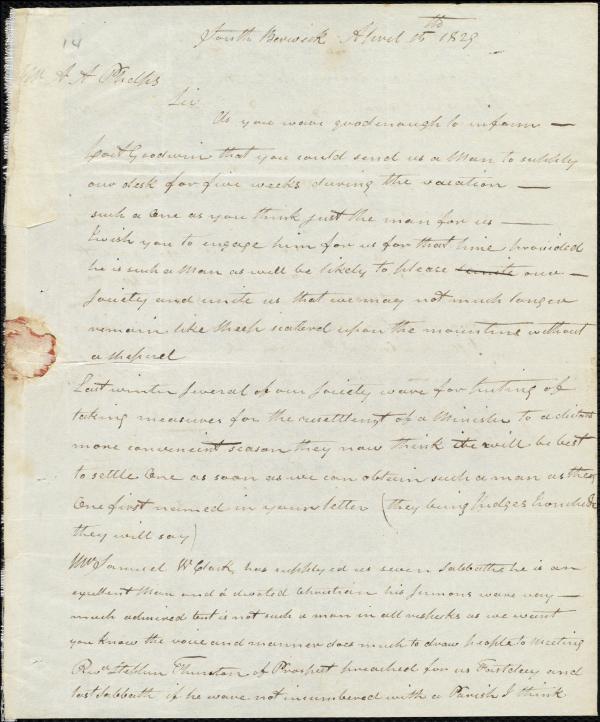 14
South Berwick April 16th 1829
Mr A A Phelps
Sir
As you wave good enough to inform —
Capt Goodwin that you could send us a Man to supply
our desk for five weeks during the vacation —
such a one as you think just the man for us —
I wish you to engage him for us for that time provided
he is such a Man as will be likely to please our —
Society and unite us that we may not much longer
remain like sheep scaterd upon the mountins without
a sheperd
Last winter several of our society wave for puting of
taking measures for the resettlengt of a Minister to a
more convenient season they now think it will be best
to settle one as soon as we can obtain such a man as the
one first named in your letter (they being Judges
they will say)
Mr Samuel W Clark has supplyed us seven Sabbaths he is an
excellent Man and a devoted Christian his sermons wave very —
much admired but is not such a man in all respects as we want
you know the voice and manner does much to draw people to meeting
Revd Stephen Thurston of Prospect preached for us Fastday and
last Sabbath if he wave not incumbered with a Parish I think